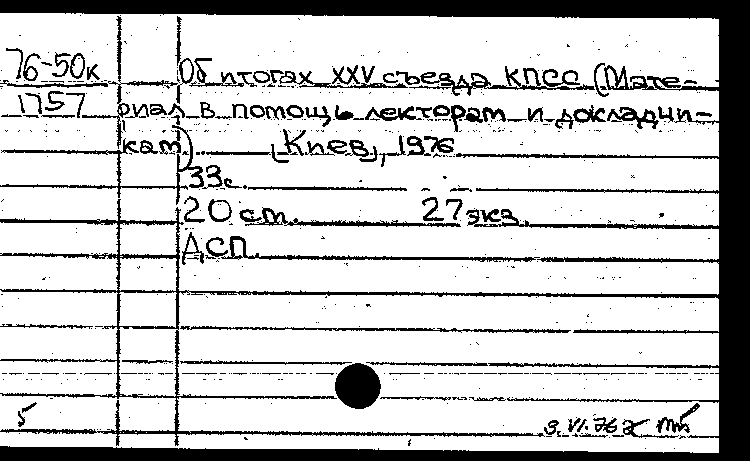 76-50к
1757
Об итогах XXV съезда КПСС (Мате-
риал в помощь лекторам и докладчи-
кам). [Киев], 1976.
33с.
20 ст. 27 экз.
ДСП.
5
3.VI.76